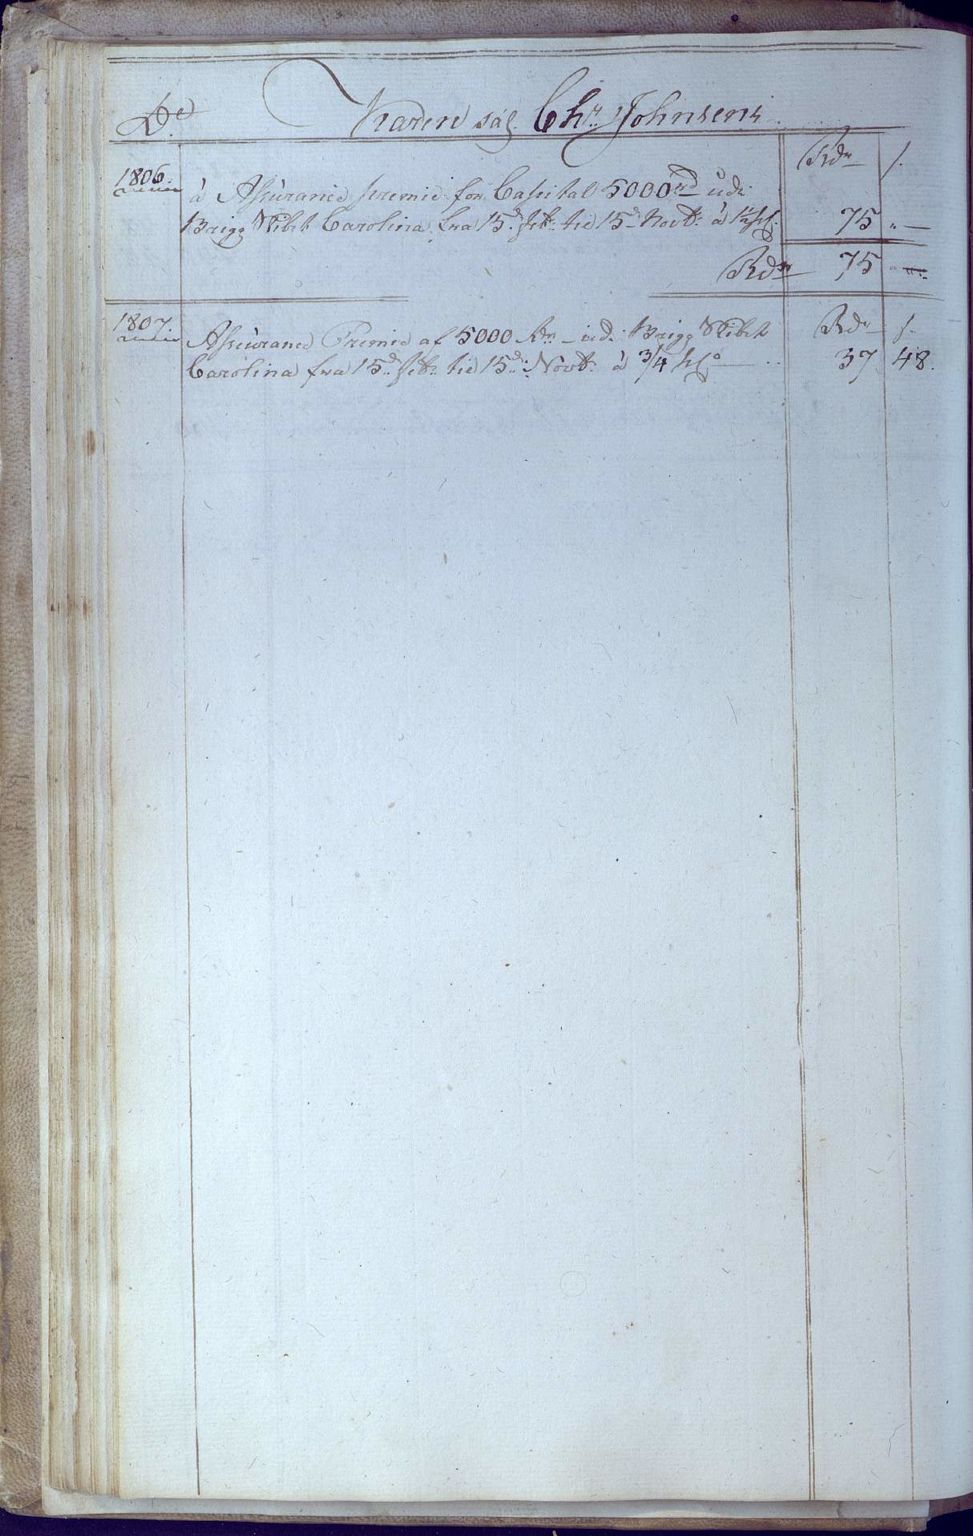 De Karen sal. Chr. Johnsens
Rdr s.
1806. à Assurance premie for Capital 5000 rd udi
Brigg Skibet Carolina fra 15d. febr. til 15d Novbr. à 1½ pC. 75 „ —
Rdr 75 „ —
1807. Assurance Premie af 5000 Rdr — udi Brigg Skibet Rdr s.
Carolina fra 15d. febr. til 15d. Novbr. à 3/4 pCo — 37 48.